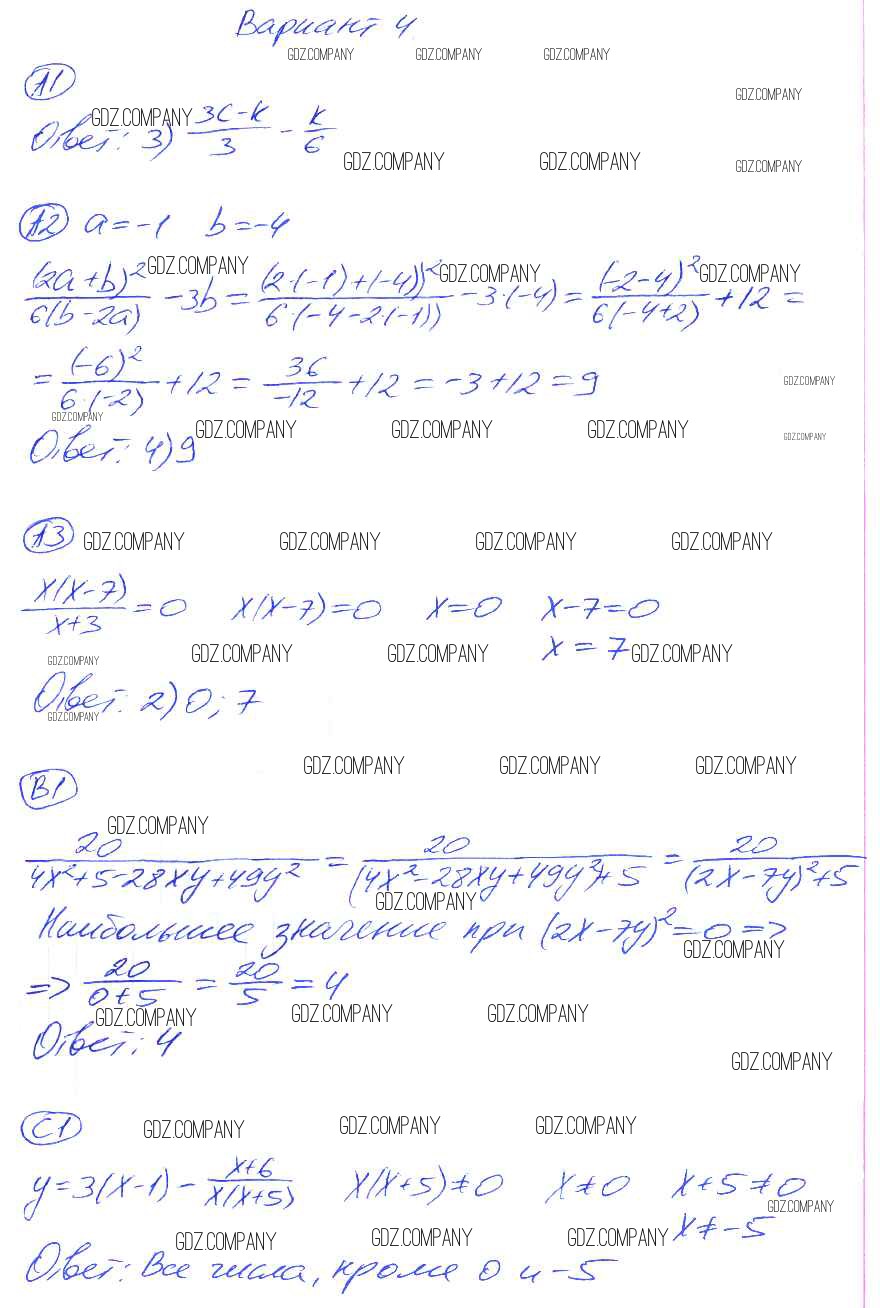 Вариант 4
GDZ.COMPANY GDZ.COMPANY GDZ.COMPANY
А1
GDZ.COMPANY
GDZ.COMPANY
Ответ: 3) (3c-k)/3 - k/6
GDZ.COMPANY GDZ.COMPANY GDZ.COMPANY
А2 a=-1 b=-4
GDZ.COMPANY GDZ.COMPANY GDZ.COMPANY
(2a+b)²/6(b-2a) -3b = (2·(-1)+(-4))²/6·(-4-2·(-1)) -3·(-4) = (-2-4)²/6(-4+2) +12 =
= (-6)²/6·(-2) +12 = 36/-12 +12 = -3+12 = 9
GDZ.COMPANY
GDZ.COMPANY
GDZ.COMPANY GDZ.COMPANY GDZ.COMPANY GDZ.COMPANY
Ответ: 4) 9
А3 GDZ.COMPANY GDZ.COMPANY GDZ.COMPANY GDZ.COMPANY
x(x-7)/x+3 = 0 x(x-7)=0 x=0 x-7=0
x=7
GDZ.COMPANY GDZ.COMPANY GDZ.COMPANY GDZ.COMPANY
Ответ: 2) 0; 7
GDZ.COMPANY
GDZ.COMPANY GDZ.COMPANY GDZ.COMPANY
В1
GDZ.COMPANY
20/4x²+5-28xy+49y² = 20/(4x²-28xy+49y²)+5 = 20/(2x-7y)²+5
GDZ.COMPANY
Наибольшее значение при (2x-7y)²=0 =>
GDZ.COMPANY
=> 20/0+5 = 20/5 = 4
GDZ.COMPANY GDZ.COMPANY GDZ.COMPANY
Ответ: 4
GDZ.COMPANY
С1 GDZ.COMPANY GDZ.COMPANY GDZ.COMPANY
y=3(x-1) - x+6/x(x+5) x(x+5)≠0 x≠0 x+5≠0
GDZ.COMPANY
x≠-5
GDZ.COMPANY GDZ.COMPANY GDZ.COMPANY
Ответ: Все числа, кроме 0 и -5